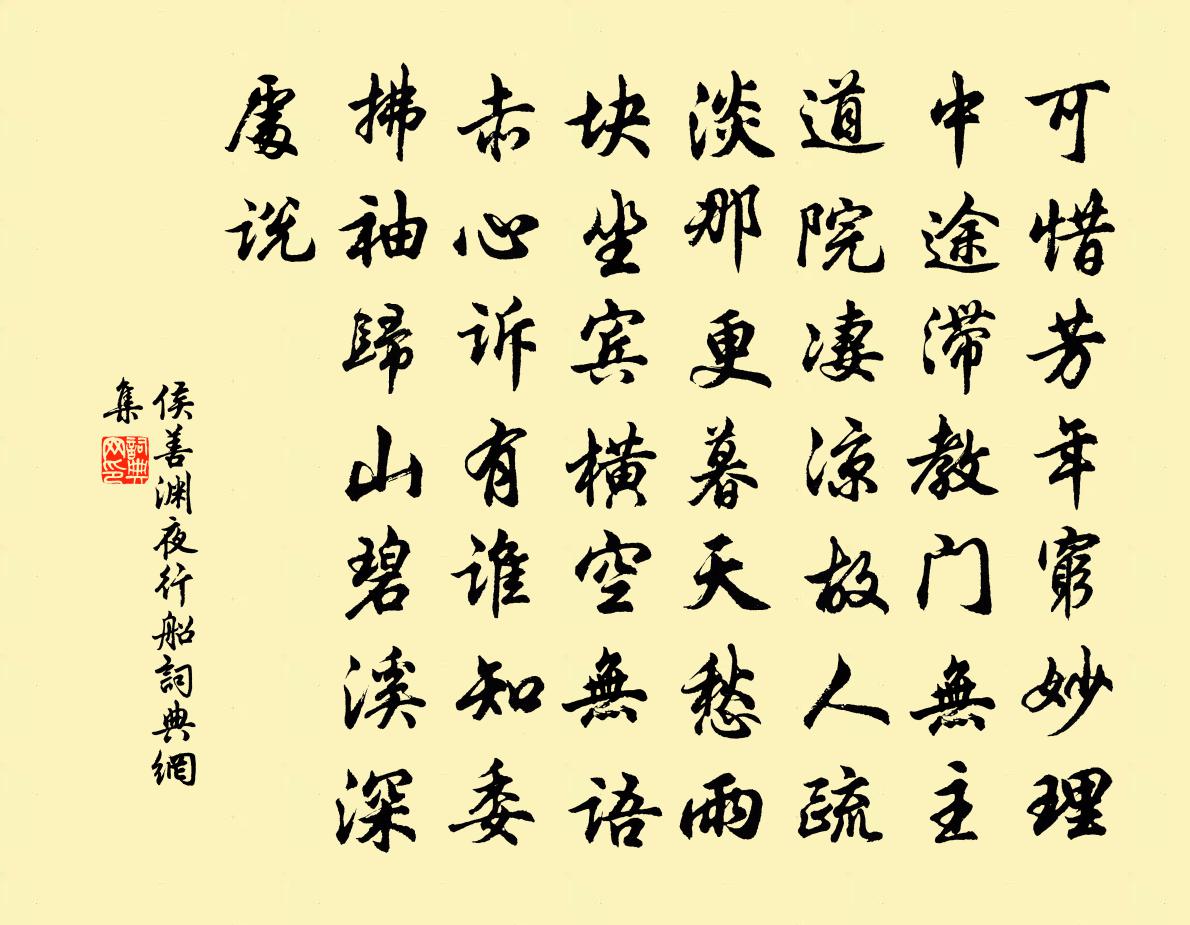 可惜芳年窮妙理
中途滯教门無主
道院凄凉故人疏
淡那更暮天愁雨
块坐宾横空無语
赤心诉有谁知委
拂袖歸山碧溪深
處说
侯善渊夜行船詞典網
集
詞典網印